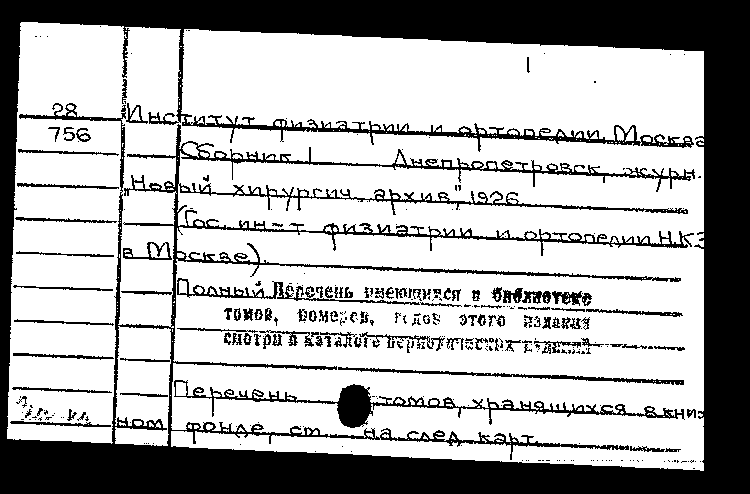 28
756
Институт физиатрии и ортопедии, Москва
Сборник I Днепропетровск, журн.
"Новый хирургич. архив", 1926.
(Гос. ин-т физиатрии и ортопедии НКЗ
в Москве).
Полный Перечень имеющихся в библиотеке
томов, номеров, годов этого издания
смотри в каталоге периодических изданий
Перечень томов, хранящихся в книж
ном фонде, см. на след. карт.